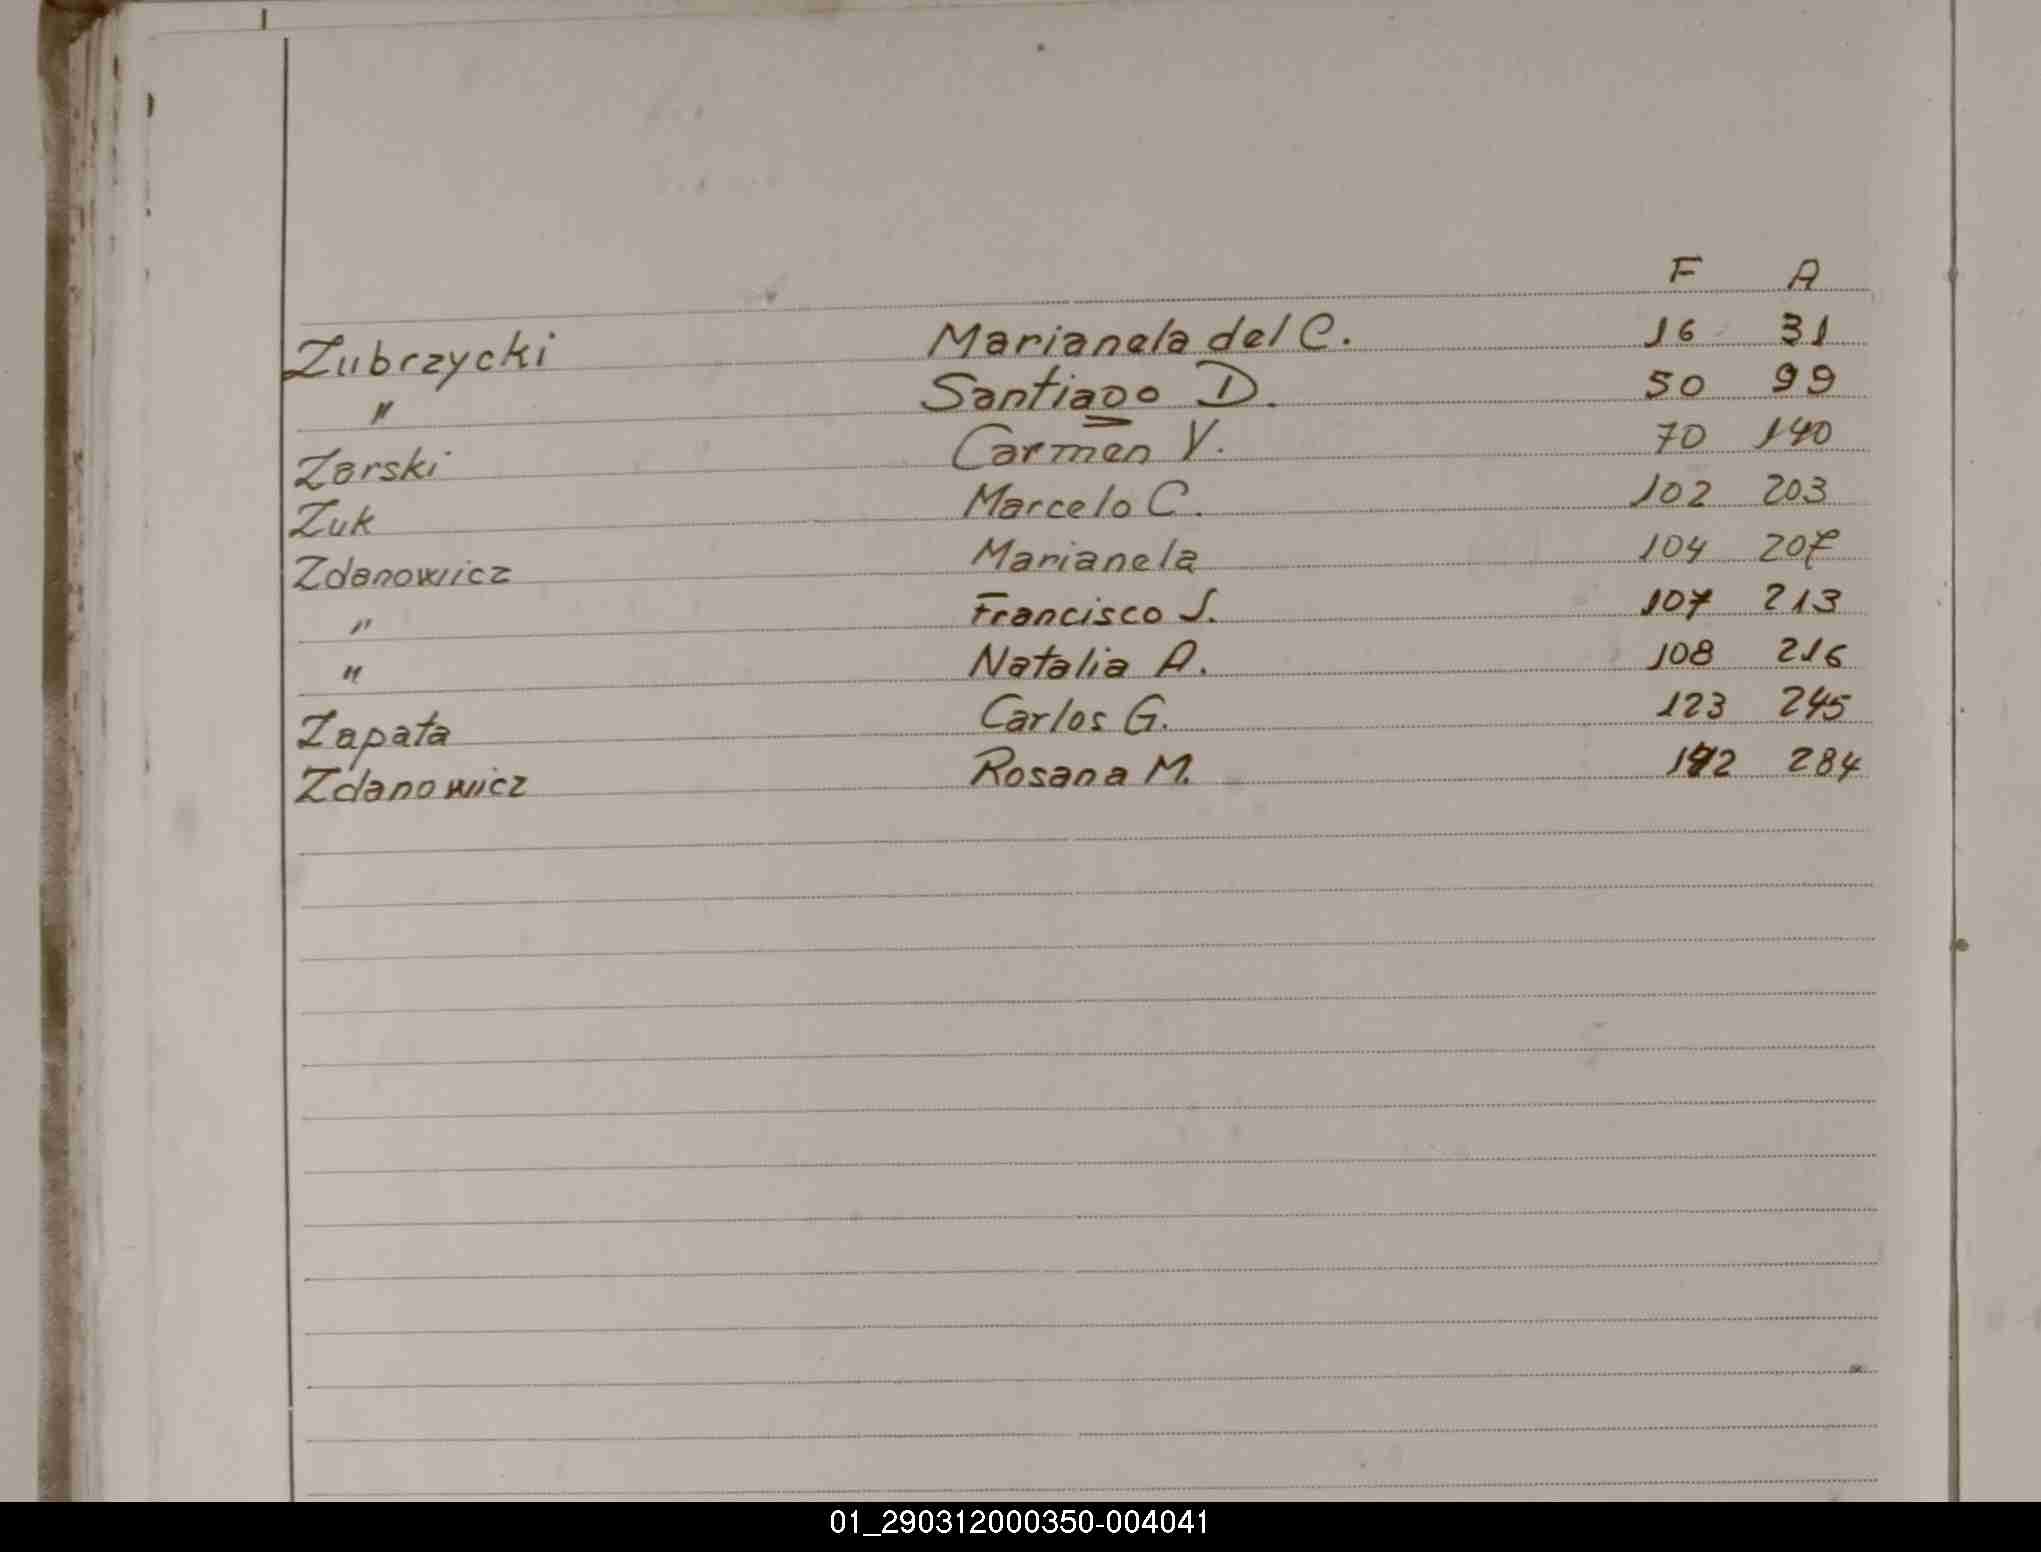 F A
Zubrzycki Marianela del C. 16 31
" Santiago D. 50 99
Zarski Carmen V. 70 140
Zuk Marcelo C. 102 203
Zdanowicz Marianela 104 207
" Francisco J. 107 213
" Natalia A. 108 216
Zapata Carlos G. 123 245
Zdanowicz Rosana M. 142 284
01_290312000350-004041